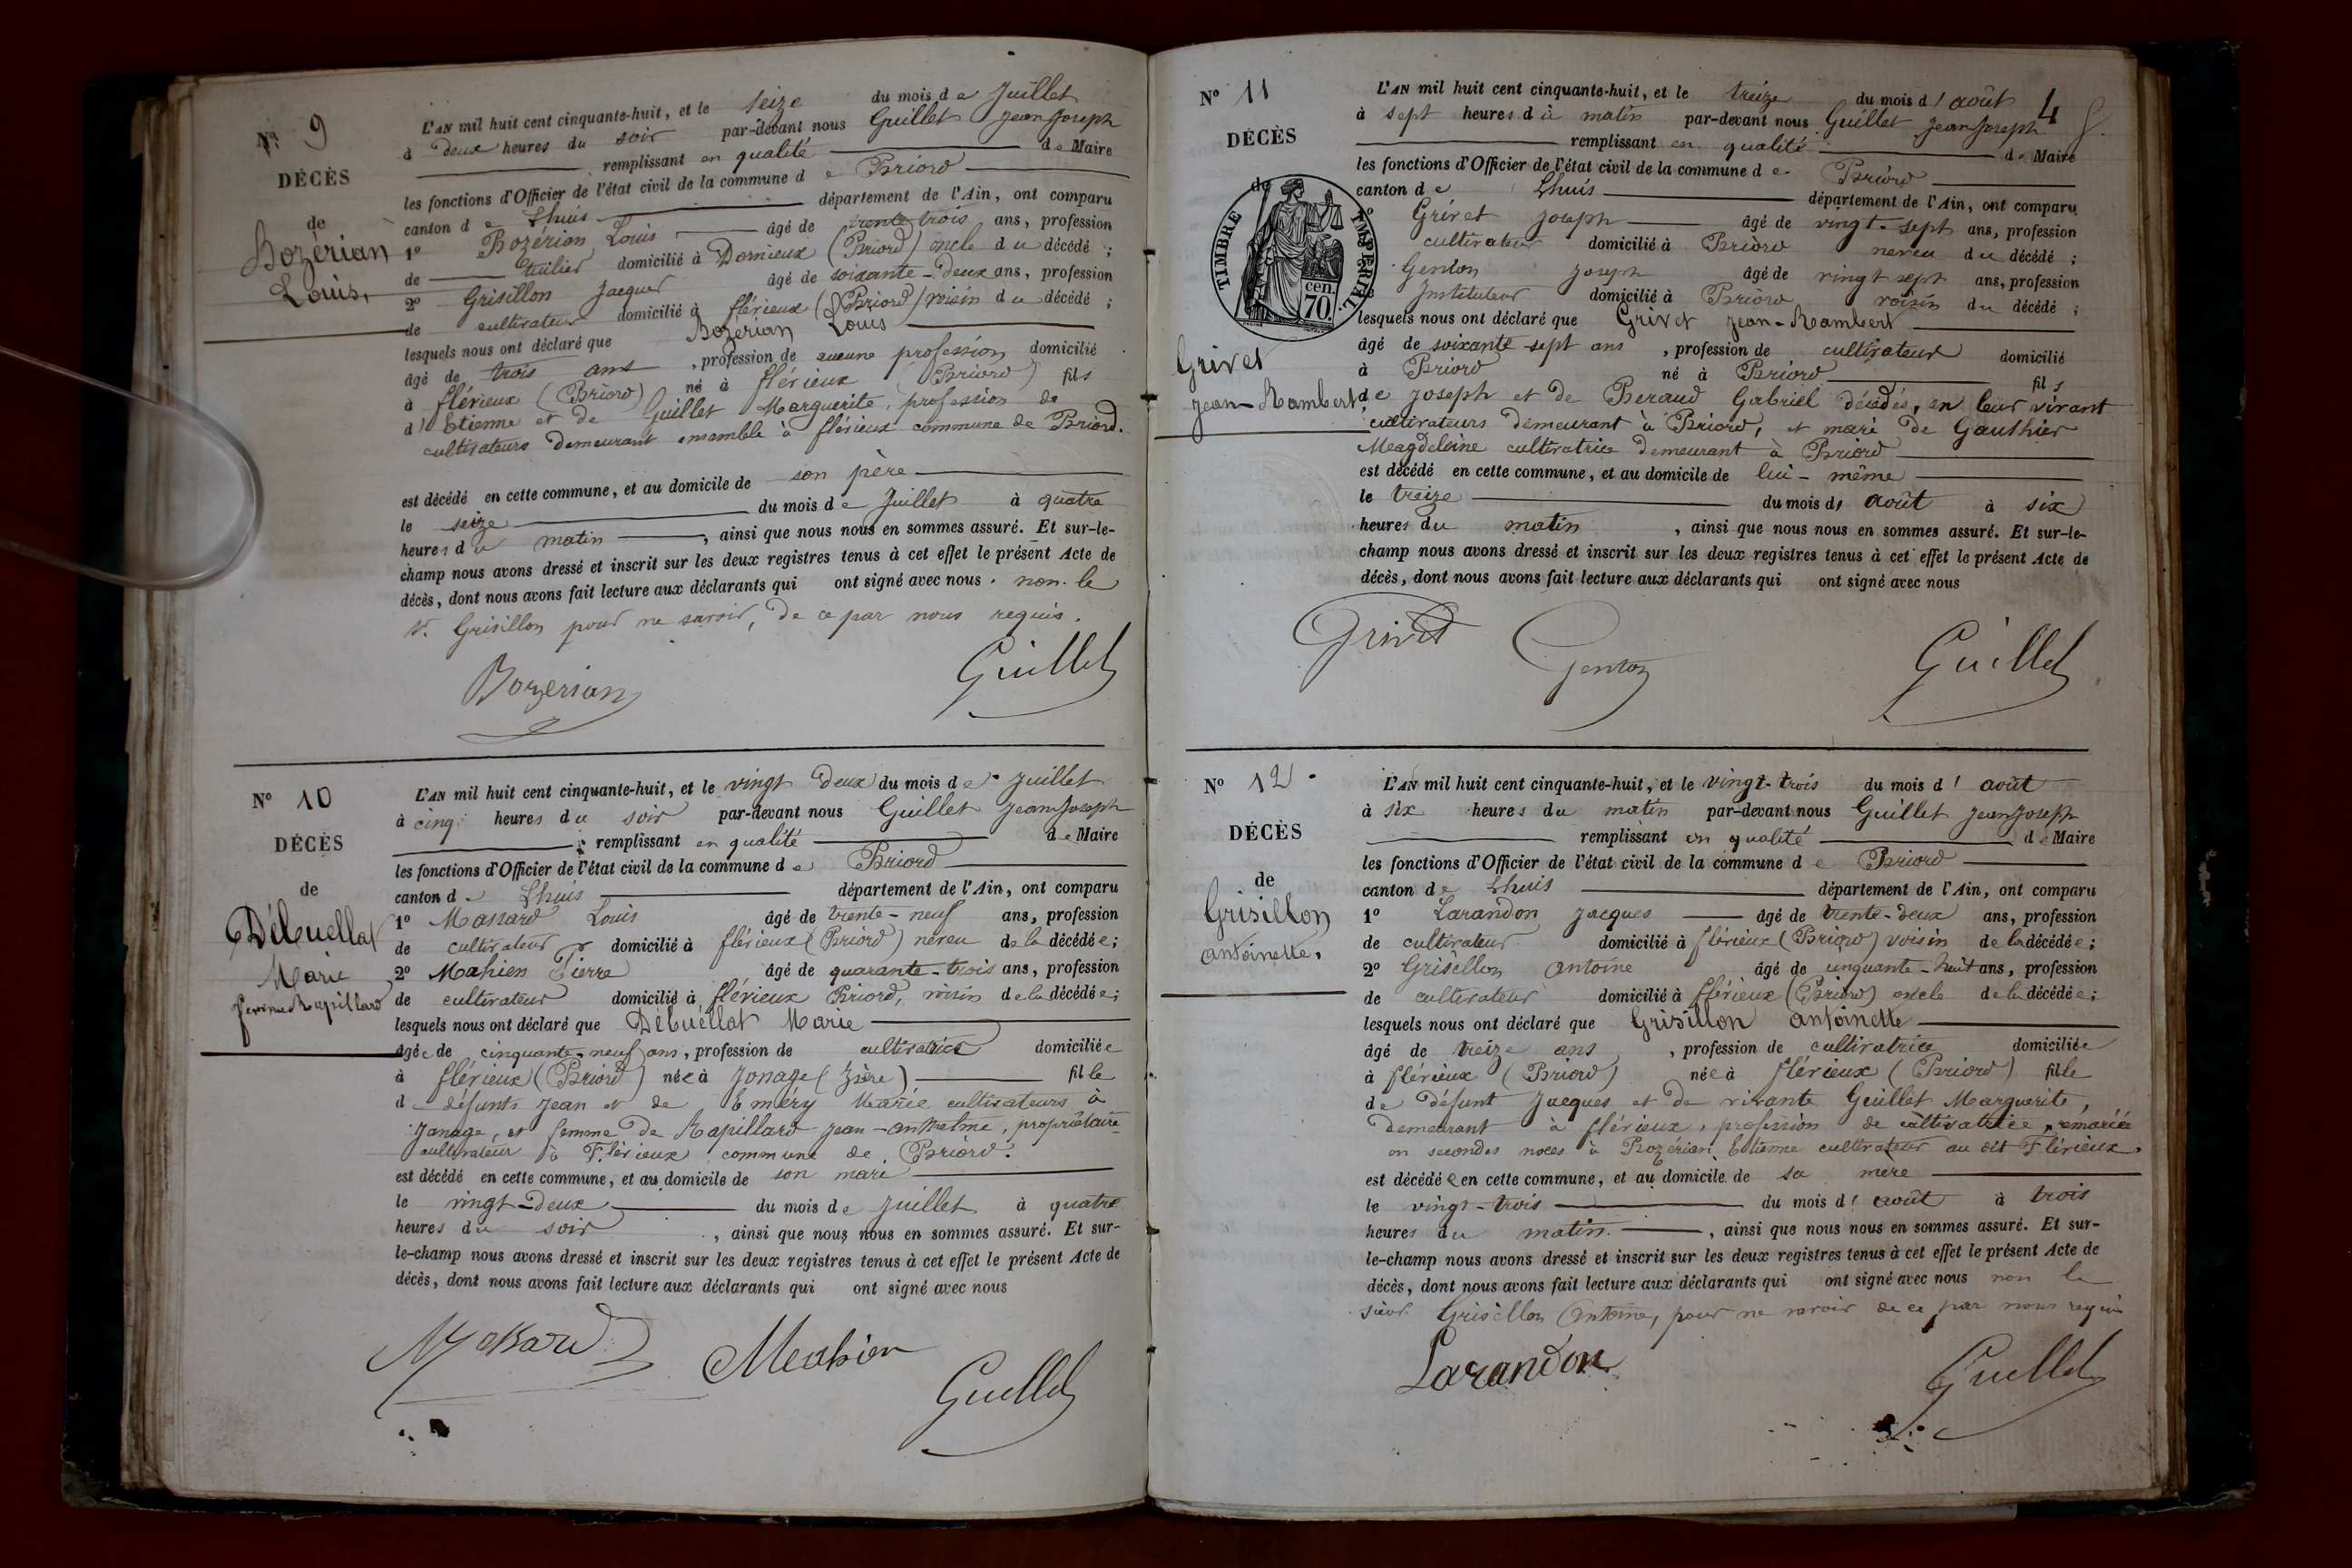 Nº 9
DÉCÈS
de
Bozérian
Louis,
L'AN mil huit cent cinquante-huit, et le seize du mois de Juillet
à deux heures du soir par-devant nous Guillet Jean Joseph
remplissant en qualité de Maire
les fonctions d'Officier de l'état civil de la commune de Briord
canton de Lhuis département de l'Ain, ont comparu
1º Bozérian Louis âgé de trente trois ans, profession
de tuilier domicilié à Dornieux (Briord) oncle du décédé ;
2º Grisillon Jacques âgé de soixante-deux ans, profession
de cultivateur domicilié à flérieux (Briord) voisin du décédé ;
lesquels nous ont déclaré que Bozérian Louis
âgé de trois ans, profession de aucune profession domicilié
à flérieux (Briord) né à flérieux (Briord) fils
d'Etienne et de Guillet Marguerite, profession de
cultivateurs demeurant ensemble à flérieux commune de Briord.
est décédé en cette commune, et au domicile de son père
le seize du mois de Juillet à quatre
heures du matin, ainsi que nous nous en sommes assuré. Et sur-le-
champ nous avons dressé et inscrit sur les deux registres tenus à cet effet le présent Acte de
décès, dont nous avons fait lecture aux déclarants qui ont signé avec nous. non le
Sr. Grisillon pour ne savoir, de ce par nous requis.
Bozerian Guillet
Nº 10
DÉCÈS
de
Débuellat
Marie
femme Rapillard
L'AN mil huit cent cinquante-huit, et le vingt deux du mois de Juillet
à cinq heures du soir par-devant nous Guillet Jean Joseph
remplissant en qualité de Maire
les fonctions d'Officier de l'état civil de la commune de Briord
canton de Lhuis département de l'Ain, ont comparu
1º Massard Louis âgé de trente-neuf ans, profession
de cultivateur domicilié à flérieux (Briord) neveu de la décédée;
2º Mahien Pierre âgé de quarante-trois ans, profession
de cultivateur domicilié à flérieux Briord, voisin de la décédée;
lesquels nous ont déclaré que Débuéllat Marie
âgée de cinquante-neuf ans, profession de cultivatrice domiciliée
à flérieux (Briord) née à Jonage (Isère) fille
de défunts Jean et de Eméry Marie cultivateurs à
Jonage, et femme de Rapillard Jean-Anthelme, propriétaire
cultivateur à Flérieux commune de Briord.
est décédé en cette commune, et au domicile de son mari
le vingt-deux du mois de Juillet à quatre
heures du soir, ainsi que nous nous en sommes assuré. Et sur-
le-champ nous avons dressé et inscrit sur les deux registres tenus à cet effet le présent Acte de
décès, dont nous avons fait lecture aux déclarants qui ont signé avec nous
Massard Meahien Guillet
4
Nº 11
DÉCÈS
de
TIMBRE IMPERIAL
70 cen.
Grivet
Jean-Rambert
L'AN mil huit cent cinquante-huit, et le treize du mois d'août
à sept heures du matin par-devant nous Guillet Jean Joseph
remplissant en qualité de Maire
les fonctions d'Officier de l'état civil de la commune de Briord
canton de Lhuis département de l'Ain, ont comparu
Grivet Joseph âgé de vingt-sept ans, profession
cultivateur domicilié à Briord neveu du décédé ;
Genton Joseph âgé de vingt sept ans, profession
de Instituteur domicilié à Briord voisin du décédé ;
lesquels nous ont déclaré que Grivet Jean-Rambert
âgé de soixante-sept ans, profession de cultivateur domicilié
à Briord né à Briord fils
de Joseph et de Beraud Gabriel décédés, en leur vivant
cultivateurs demeurant à Briord, et mari de Gauthier
Meagdeleine cultivatrice demeurant à Briord
est décédé en cette commune, et au domicile de lui-même
le treize du mois d'août à six
heures du matin, ainsi que nous nous en sommes assuré. Et sur-le-
champ nous avons dressé et inscrit sur les deux registres tenus à cet effet le présent Acte de
décès, dont nous avons fait lecture aux déclarants qui ont signé avec nous
Grivet Genton Guillet
Nº 12
DÉCÈS
de
Grisillon
antoinette.
L'AN mil huit cent cinquante-huit, et le vingt-trois du mois d'août
à six heures du matin par-devant nous Guillet Jean Joseph
remplissant en qualité de Maire
les fonctions d'Officier de l'état civil de la commune de Briord
canton de Lhuis département de l'Ain, ont comparu
1º Larandon Jacques âgé de trente-deux ans, profession
de cultivateur domicilié à flérieux (Briord) voisin de la décédée;
2º Grisillon antoine âgé de cinquante-huit ans, profession
de cultivateur domicilié à flérieux (Briord) oncle de la décédée;
lesquels nous ont déclaré que Grisillon antoinette
âgé de treize ans, profession de cultivatrice domiciliée
à flérieux (Briord) née à flérieux (Briord) fille
de défunt Jacques et de vivante Guillet Marguerite,
demeurant à flérieux, profession de cultivatrice, remariée
en secondes noces à Bozérian Etienne cultivateur au dit Flérieux.
est décédée en cette commune, et au domicile de sa mère
le vingt-trois du mois d'août à trois
heures du matin, ainsi que nous nous en sommes assuré. Et sur-
le-champ nous avons dressé et inscrit sur les deux registres tenus à cet effet le présent Acte de
décès, dont nous avons fait lecture aux déclarants qui ont signé avec nous non le
sieur Grisillon Antoine, pour ne savoir de ce par nous requis
Larandon Guillet